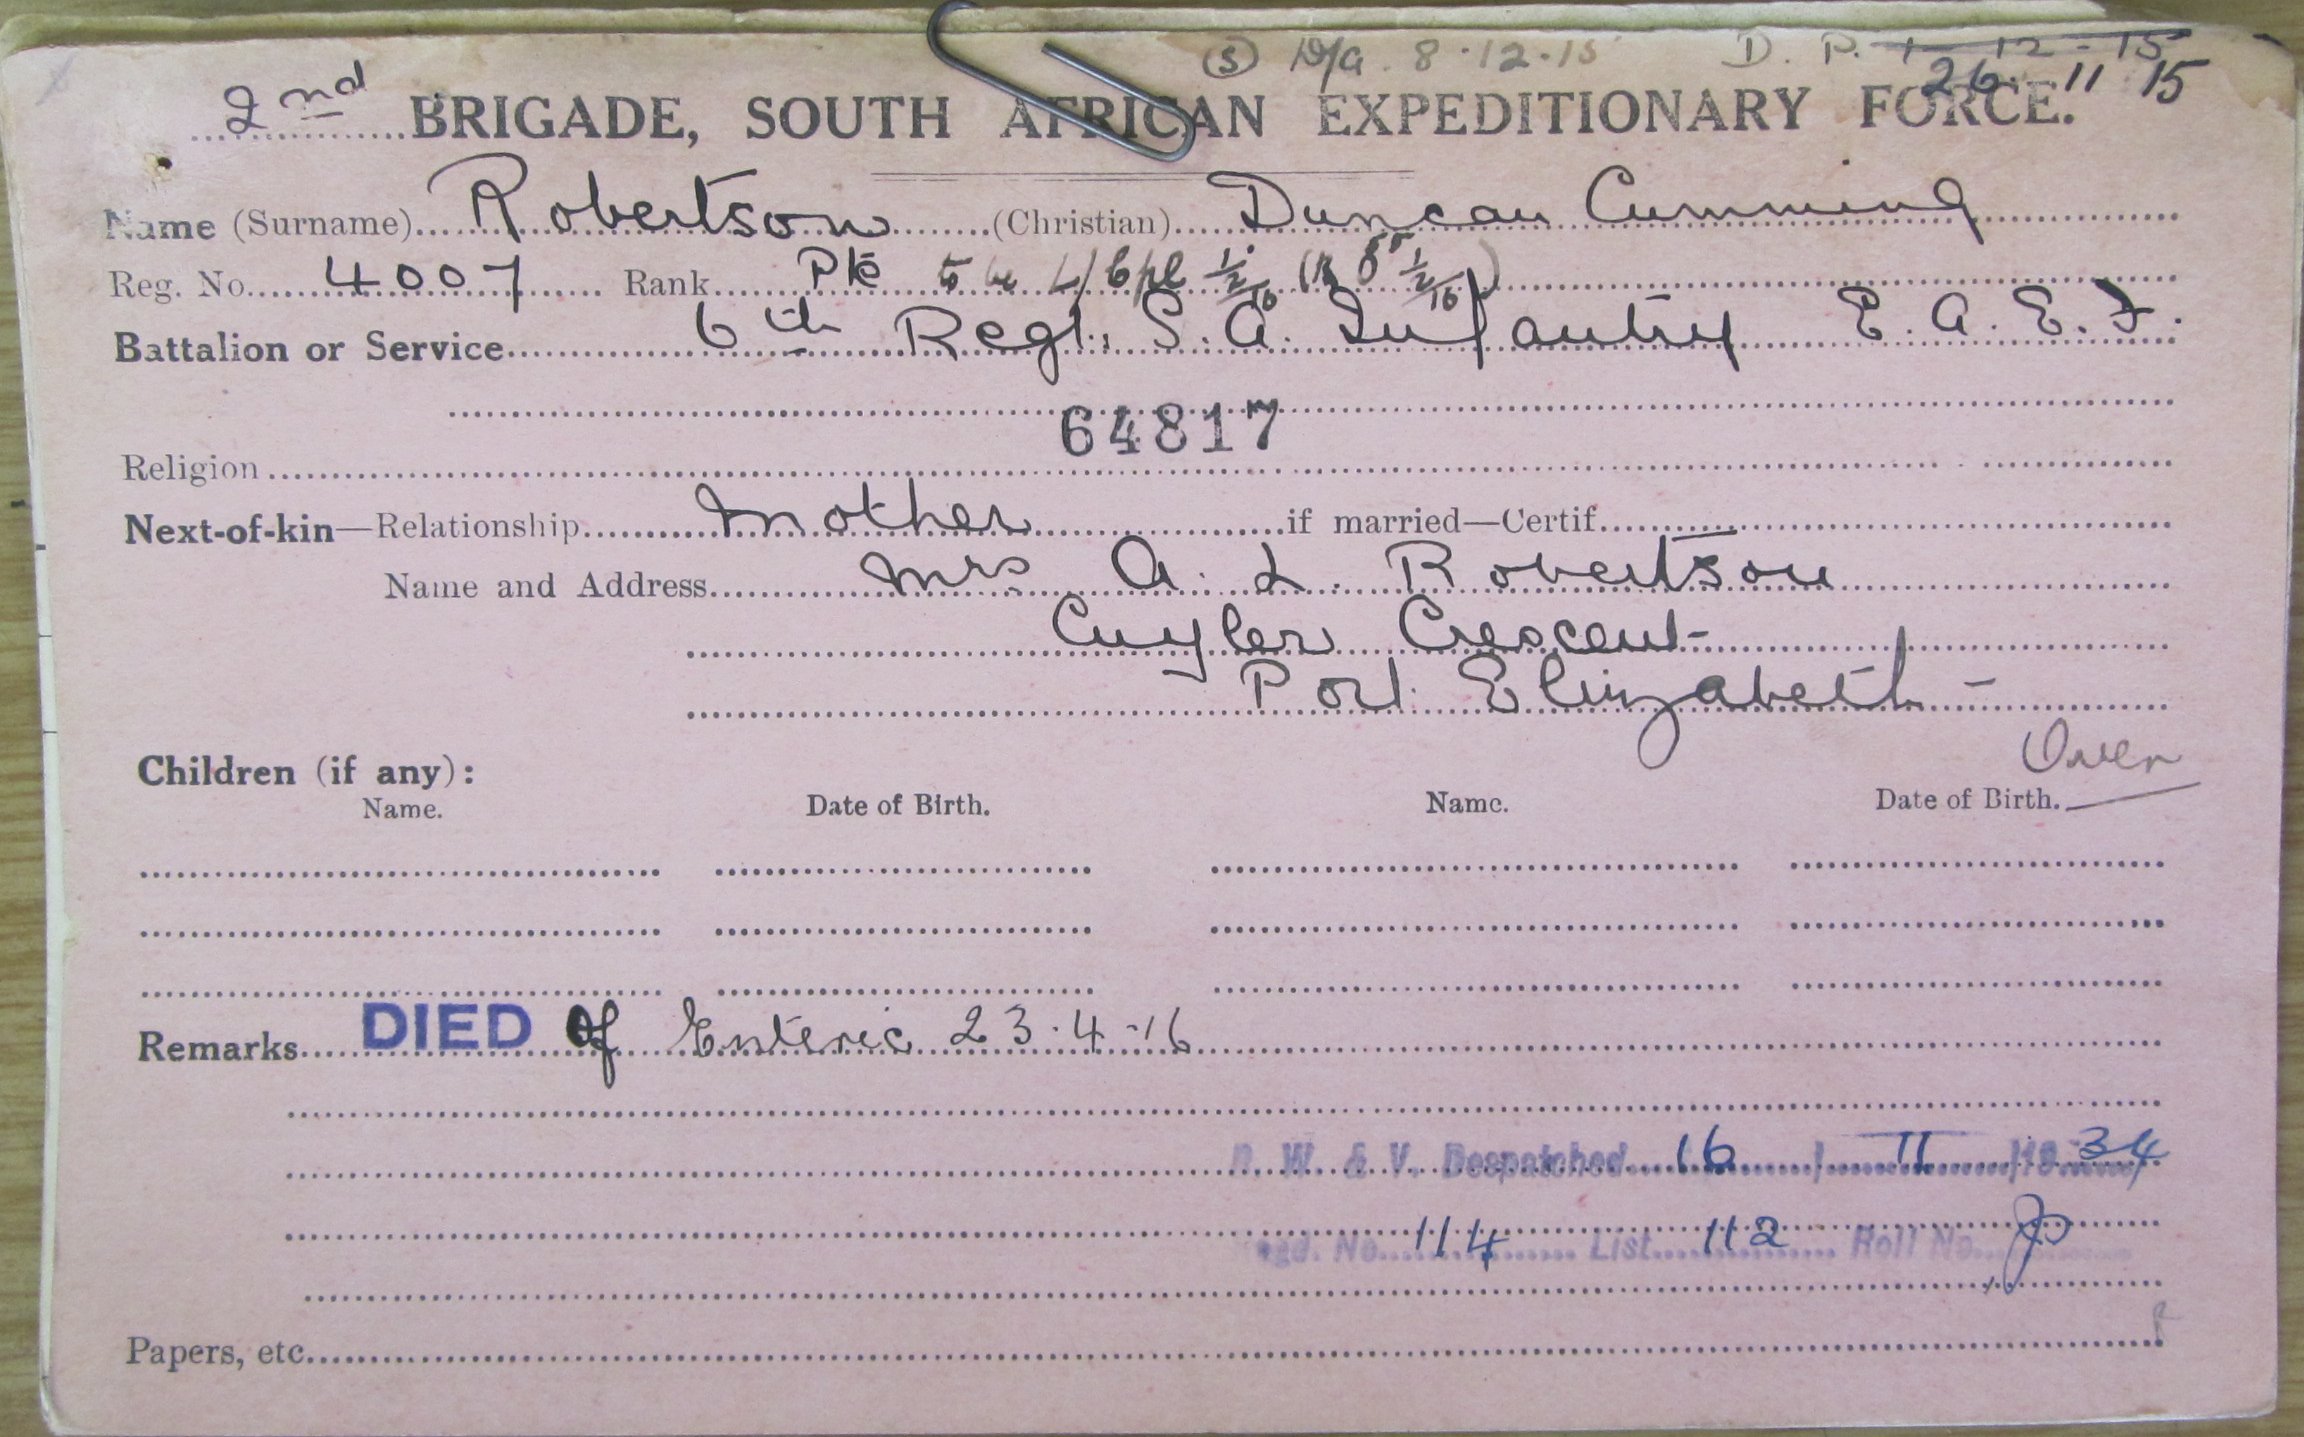 (S) D/A. 8.12.15 D. P. 1-12-15
26 11 15
2nd BRIGADE, SOUTH AFRICAN EXPEDITIONARY FORCE.
Name (Surname) Robertson (Christian) Duncan Cumming
Reg. No. 4007 Rank Pte to be L/Cpl 1/2/16 (R 8 1/2/16)
Battalion or Service 6th Regt. S. A. Infantry E. A. E. F.
64817
Religion
Next-of-kin—Relationship Mother if married—Certif.
Name and Address Mrs A. L. Robertson
Cuyler Crescent
Port Elizabeth -
Over
Children (if any):
Name. Date of Birth. Name. Date of Birth.
Remarks DIED of Enteric 23.4.16
W. & V. Despatched 16 / 11 /19 34
gd. No. 114 List 112 Roll No.
Papers, etc.